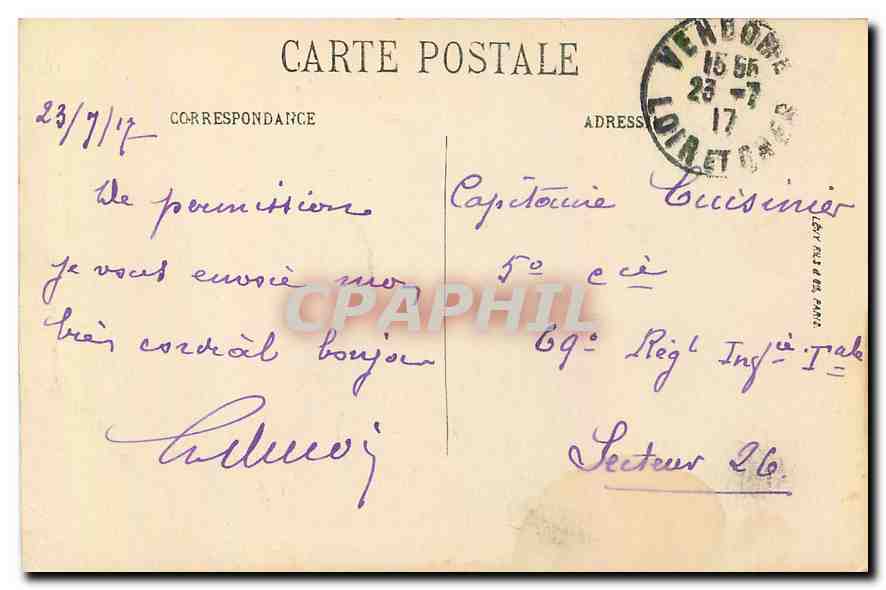 CARTE POSTALE
23/7/17 CORRESPONDANCE
De permission
je vous envoie mon
bien cordial bonjour
ADRESSE
Capitaine Cuisinier
5e Cie
69e Régt Infie Tale
Secteur 26.
VENDOME
15 55
23 -7
17
LOIR ET CHER
LÉVY FILS & Cie, PARIS.
CPAPHIL